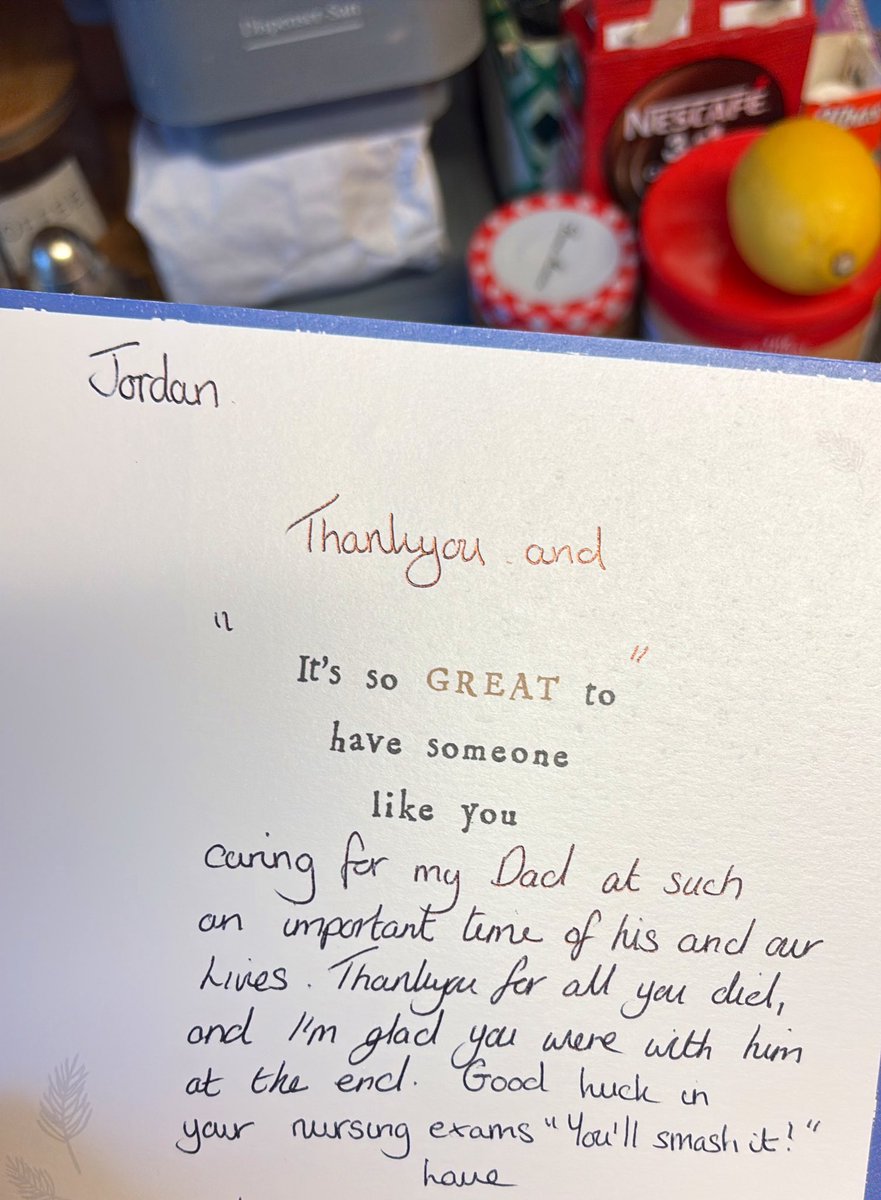 Dispenser Salt
NESCAFÉ
3 in 1
Jordan.
Thankyou. and
"It's so GREAT to"
have someone
like you
caring for my Dad at such
an important time of his and our
Lives. Thankyou for all you did,
and I'm glad you were with him
at the end. Good luck in
your nursing exams "You'll smash it!"
have